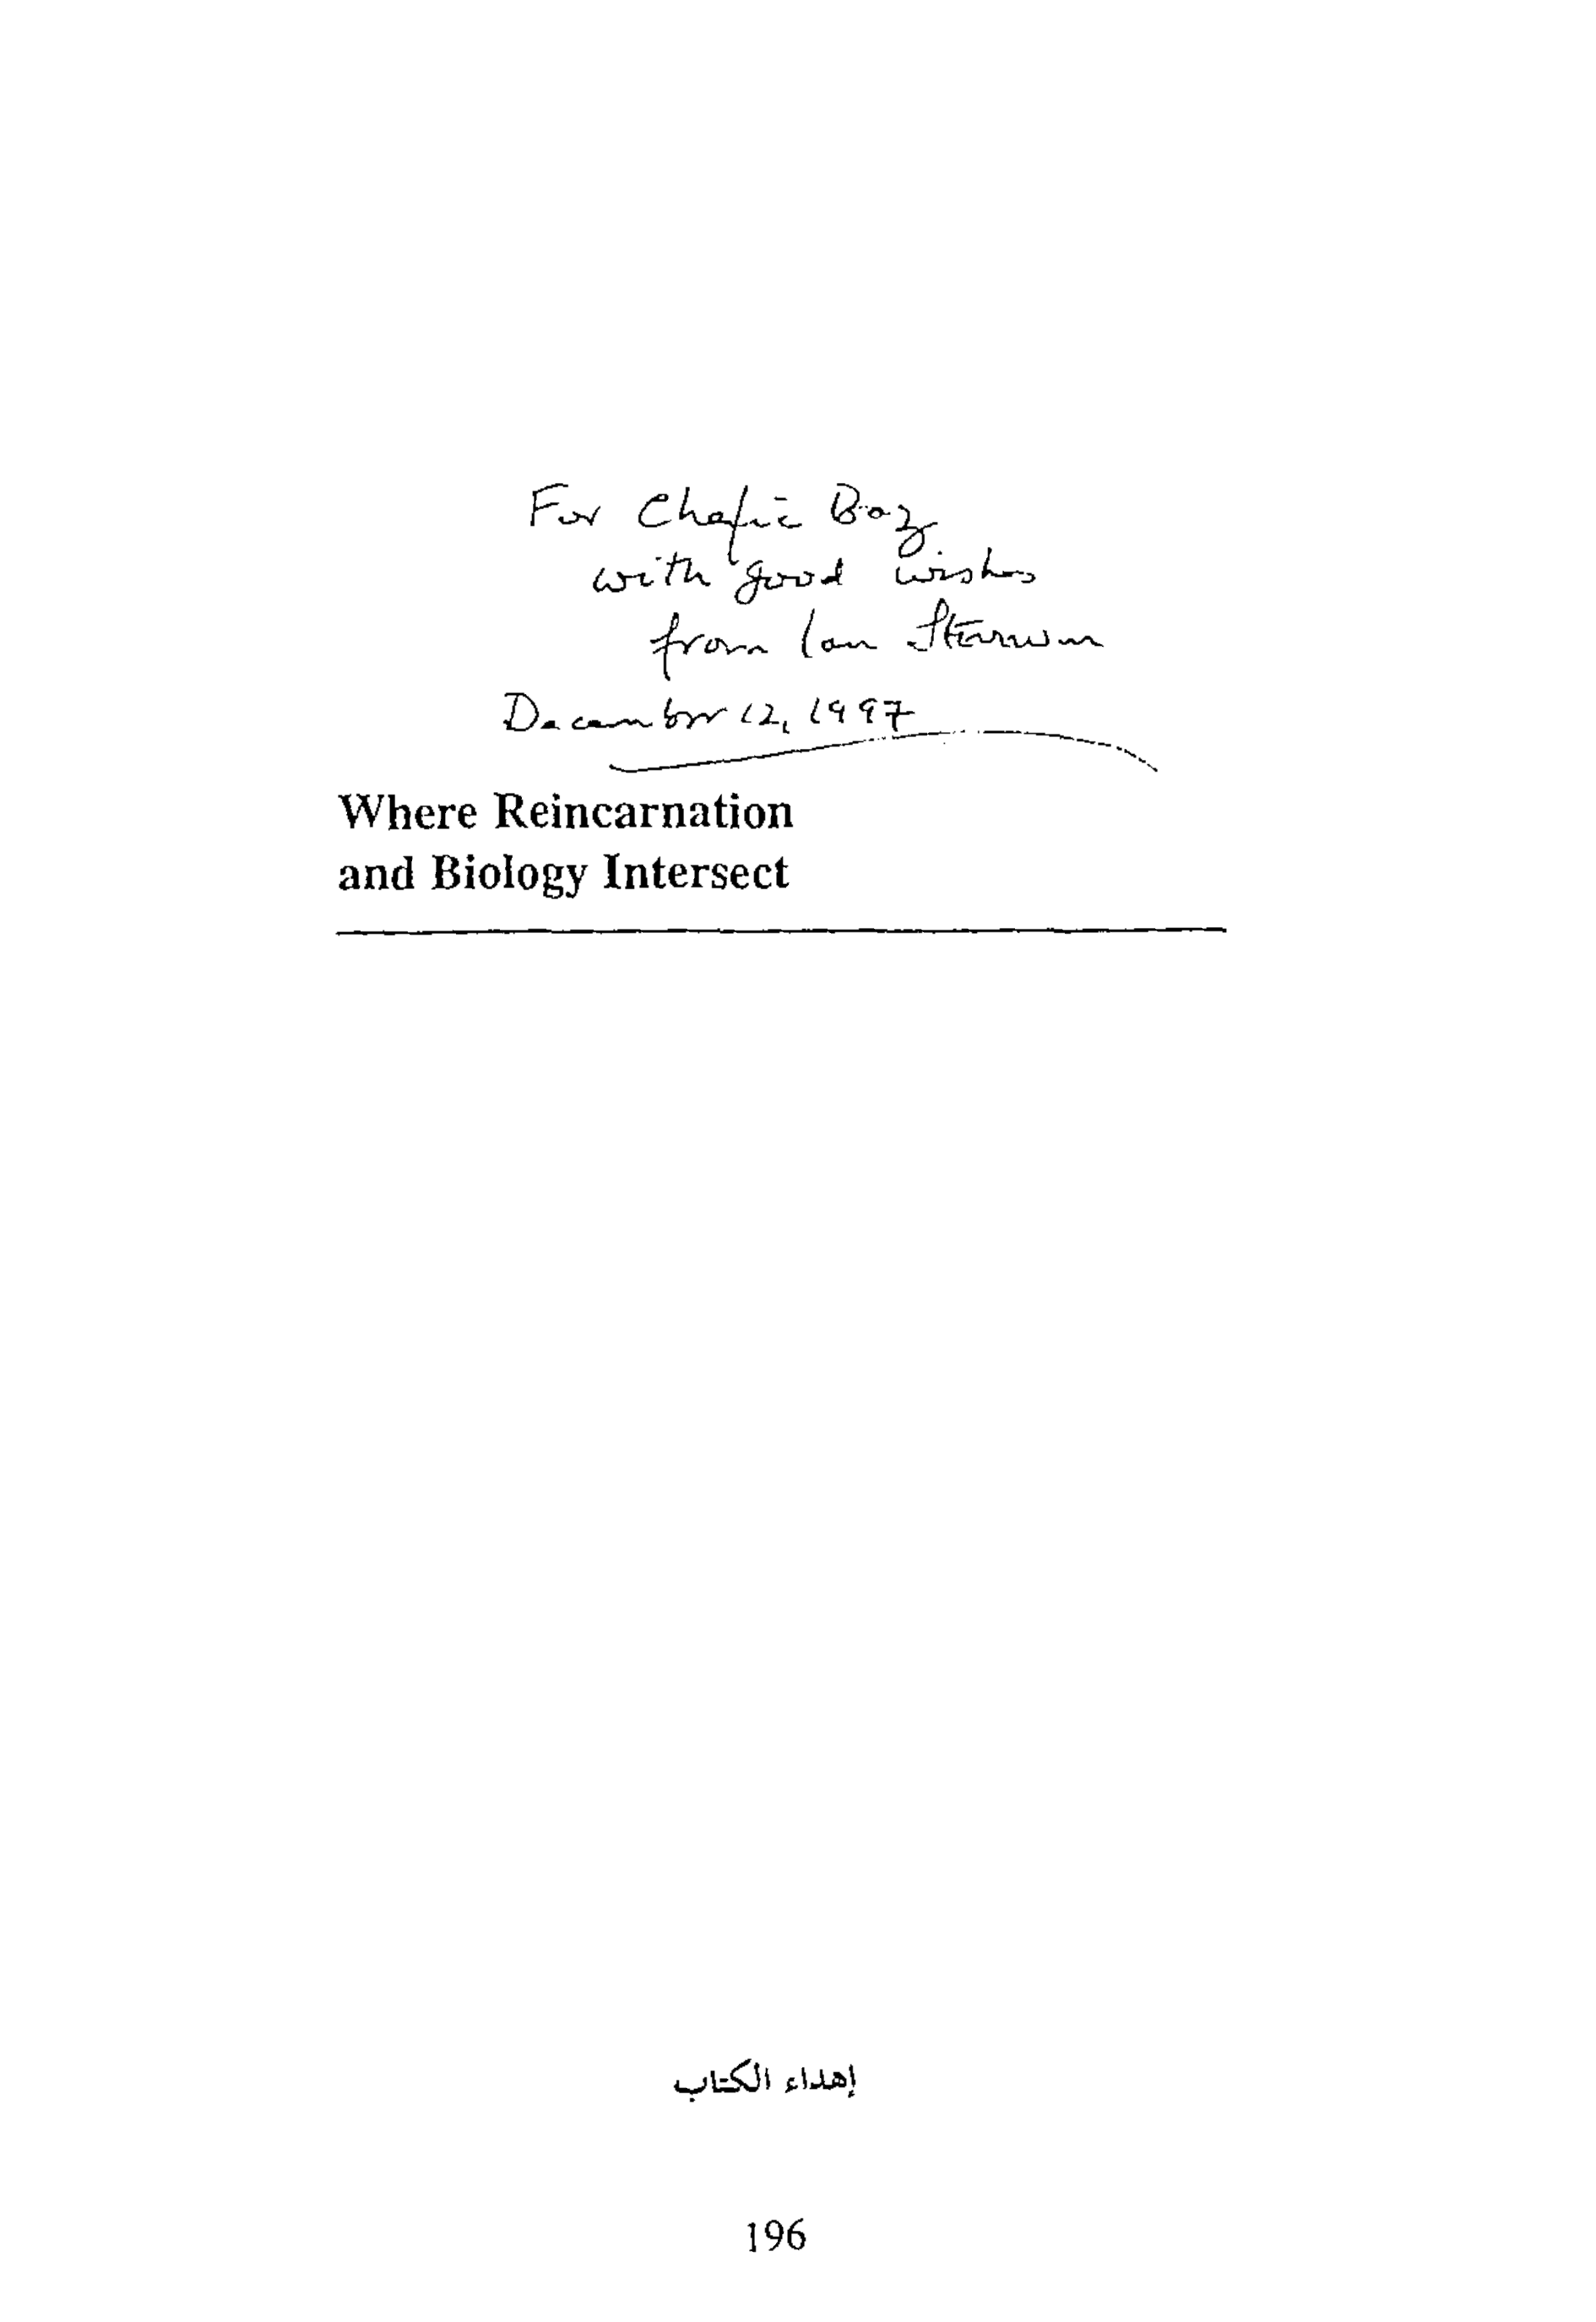 For Chafic Baz
with good wishes
from Ian Stevenson
December 12, 1997
Where Reincarnation
and Biology Intersect
إهداء الكتاب
196